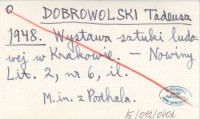 DOBROWOLSKI Tadeusz
1948. Wystawa sztuki ludo-
wej w Krakowie. – Nowiny
Lit. 2, nr 6, il.
M.in. z Podhala.